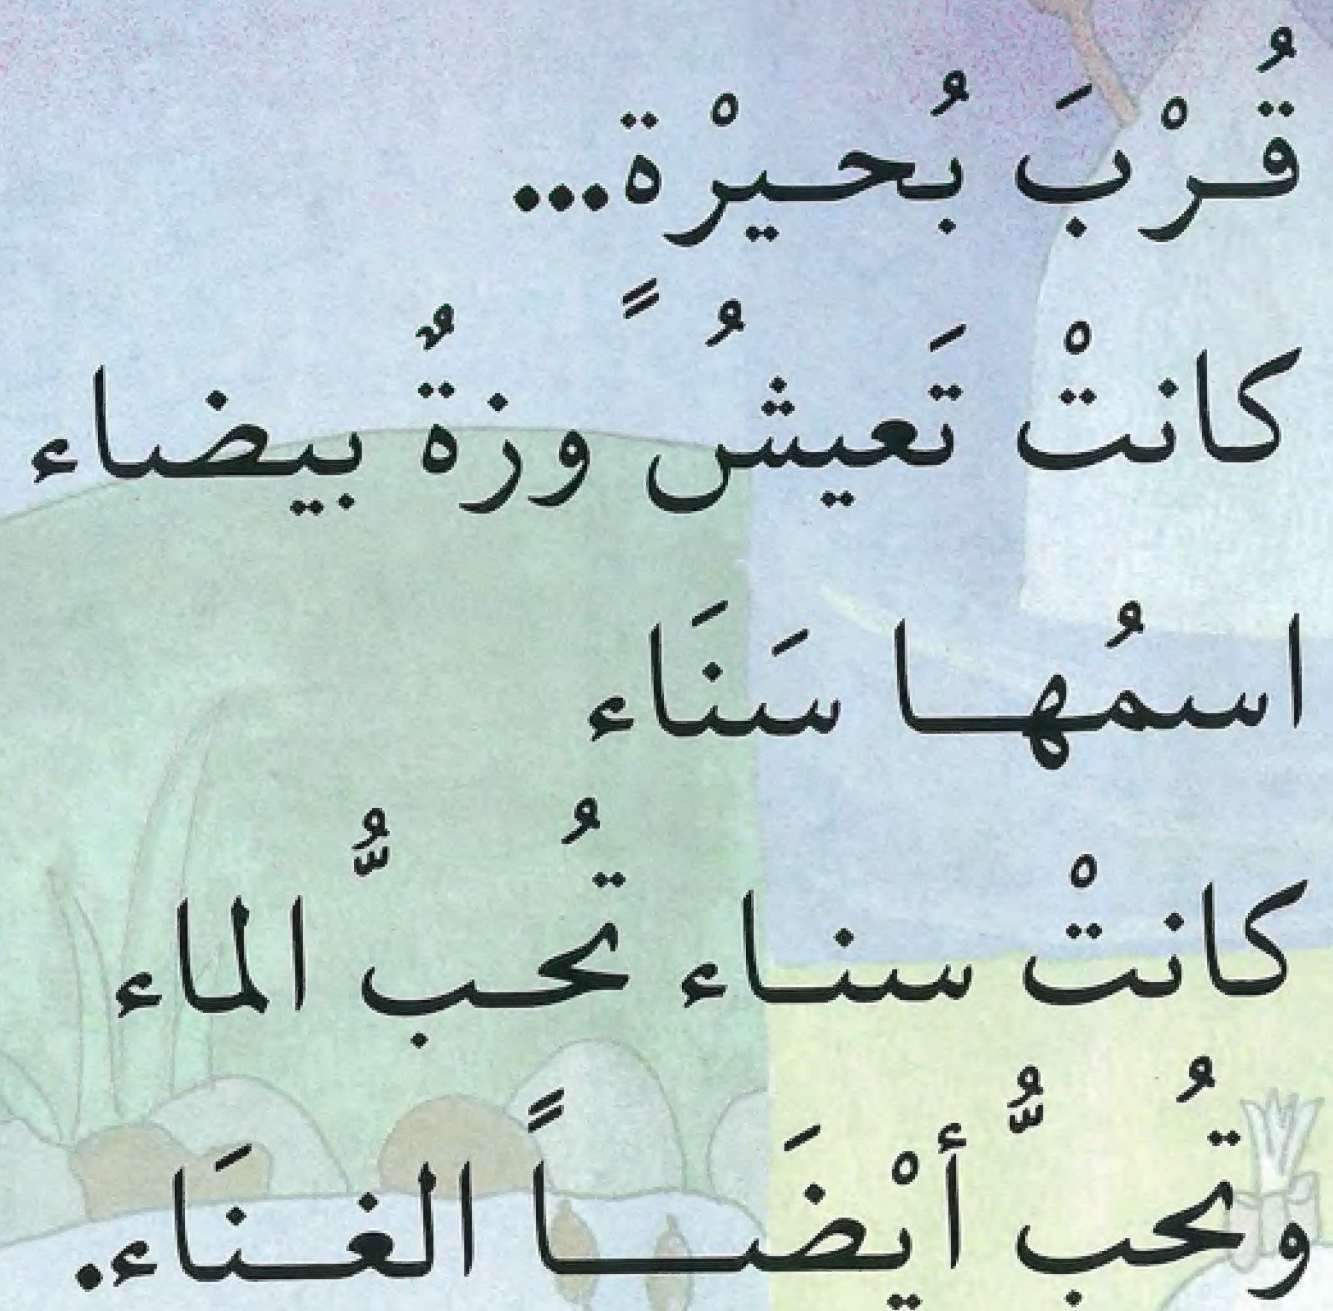 قُرْبَ بُحيرْة...
كانتْ تَعيشُ ً وزةٌ بيضاء
اسمُها سَنَاء
كانتْ سناء تُحبُّ الماء
وتُحبُّ أيْضَاً الغنَاء.